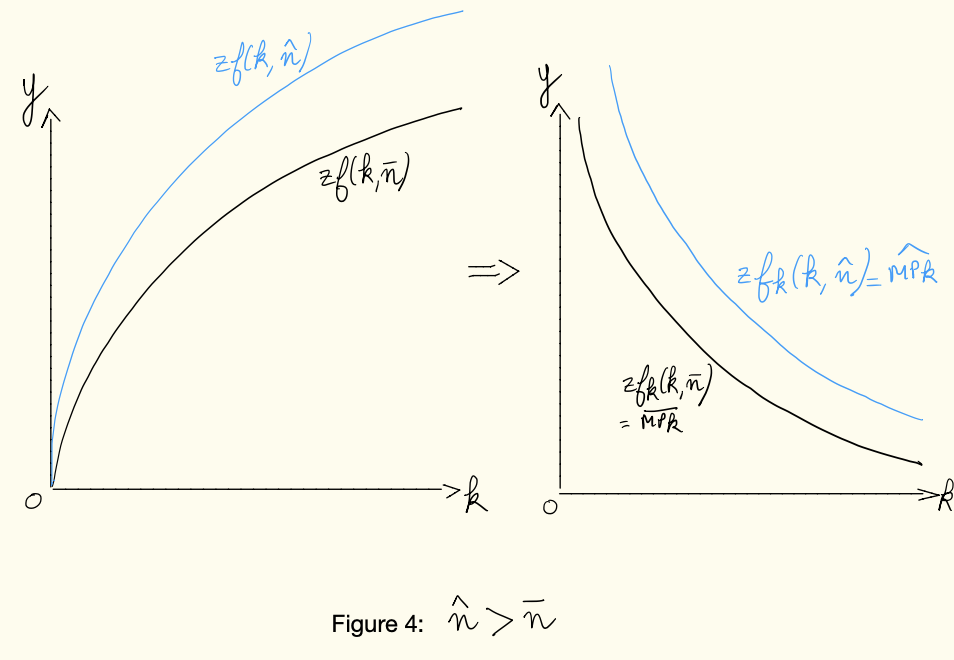 y
zf(k, n̂)
zf(k, n̄)
O
k
⇒
y
zfₖ(k, n̂) = M͡PK
zfₖ(k, n̄)
= M̅P̅K̅
O
k
Figure 4: n̂ > n̄